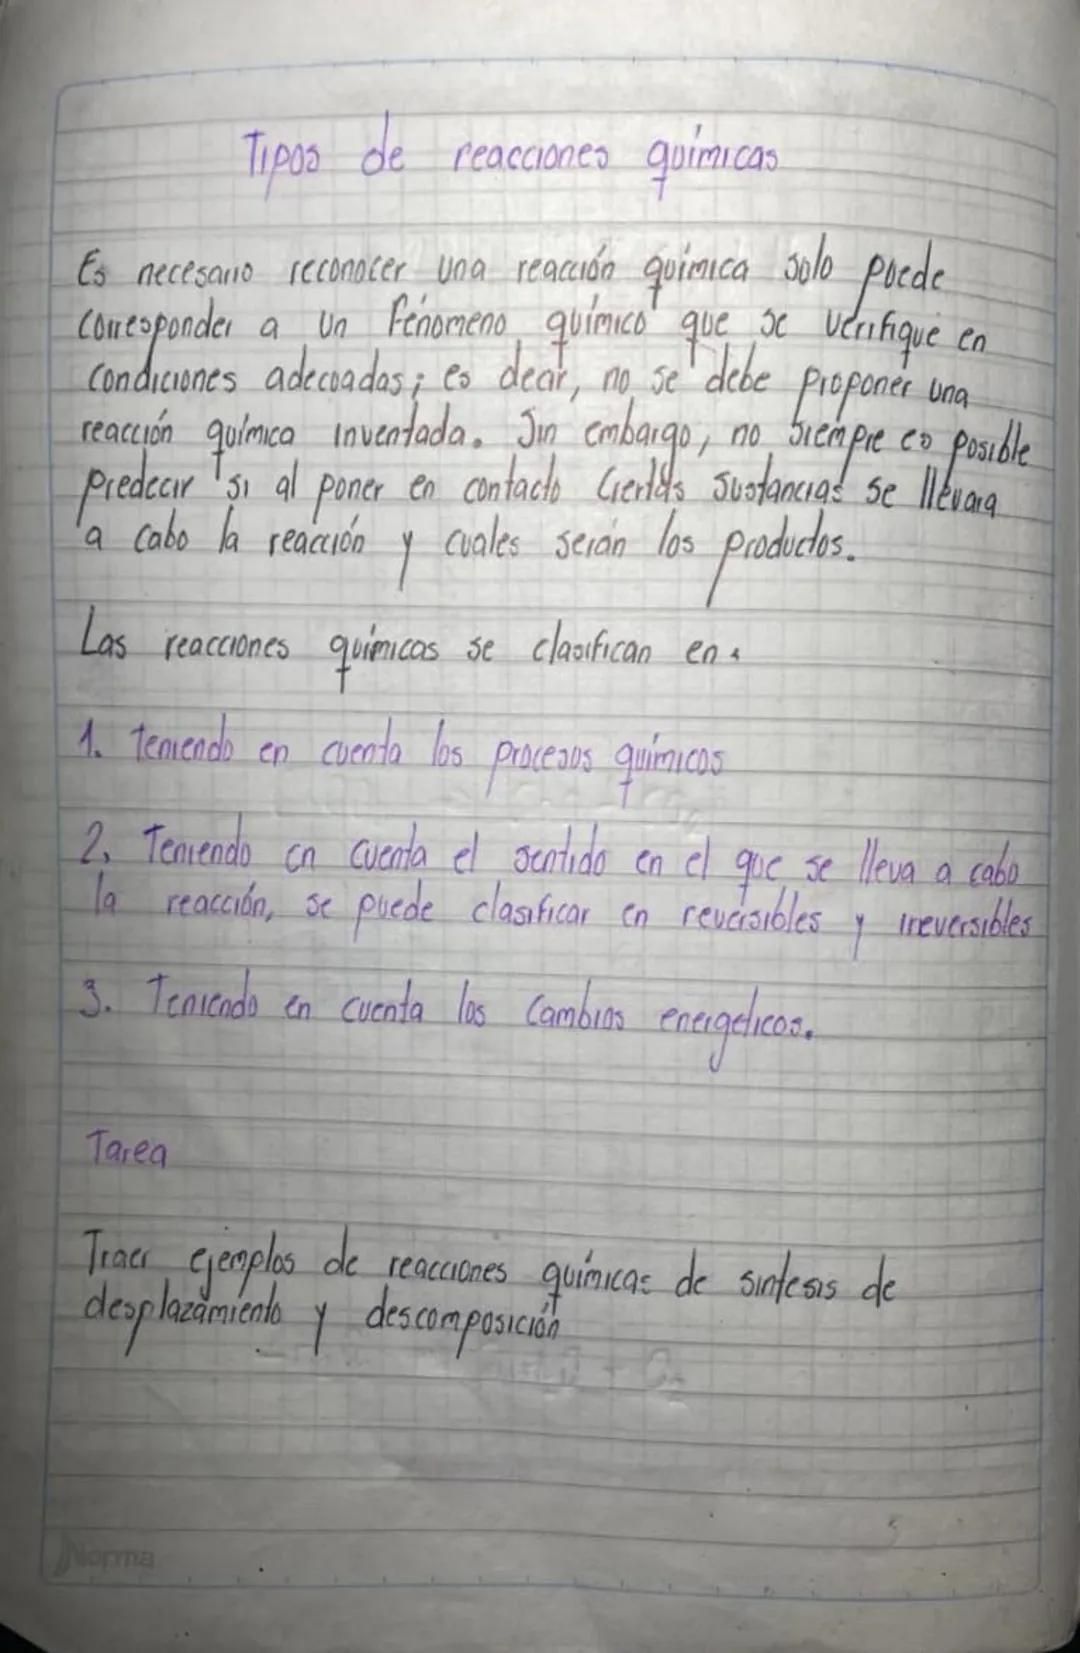 Tipos de reacciones químicas
Es necesario reconocer una reacción química solo puede
corresponder a un fenomeno químico que se verifique en
condiciones adecuadas; es decir, no se debe proponer una
reacción química inventada. Sin embargo, no siempre es posible
predecir si al poner en contacto ciertas sustancias se llevara
a cabo la reacción y cuales serán los productos.
Las reacciones químicas se clasifican en:
1. teniendo en cuenta los procesos químicos
2. Teniendo en cuenta el sentido en el que se lleva a cabo
la reacción, se puede clasificar en reversibles y ireversibles
3. Teniendo en cuenta los cambios energeticos.
Tarea
Traer ejemplos de reacciones químicas de sintesis de
desplazamiento y descomposición
Norma